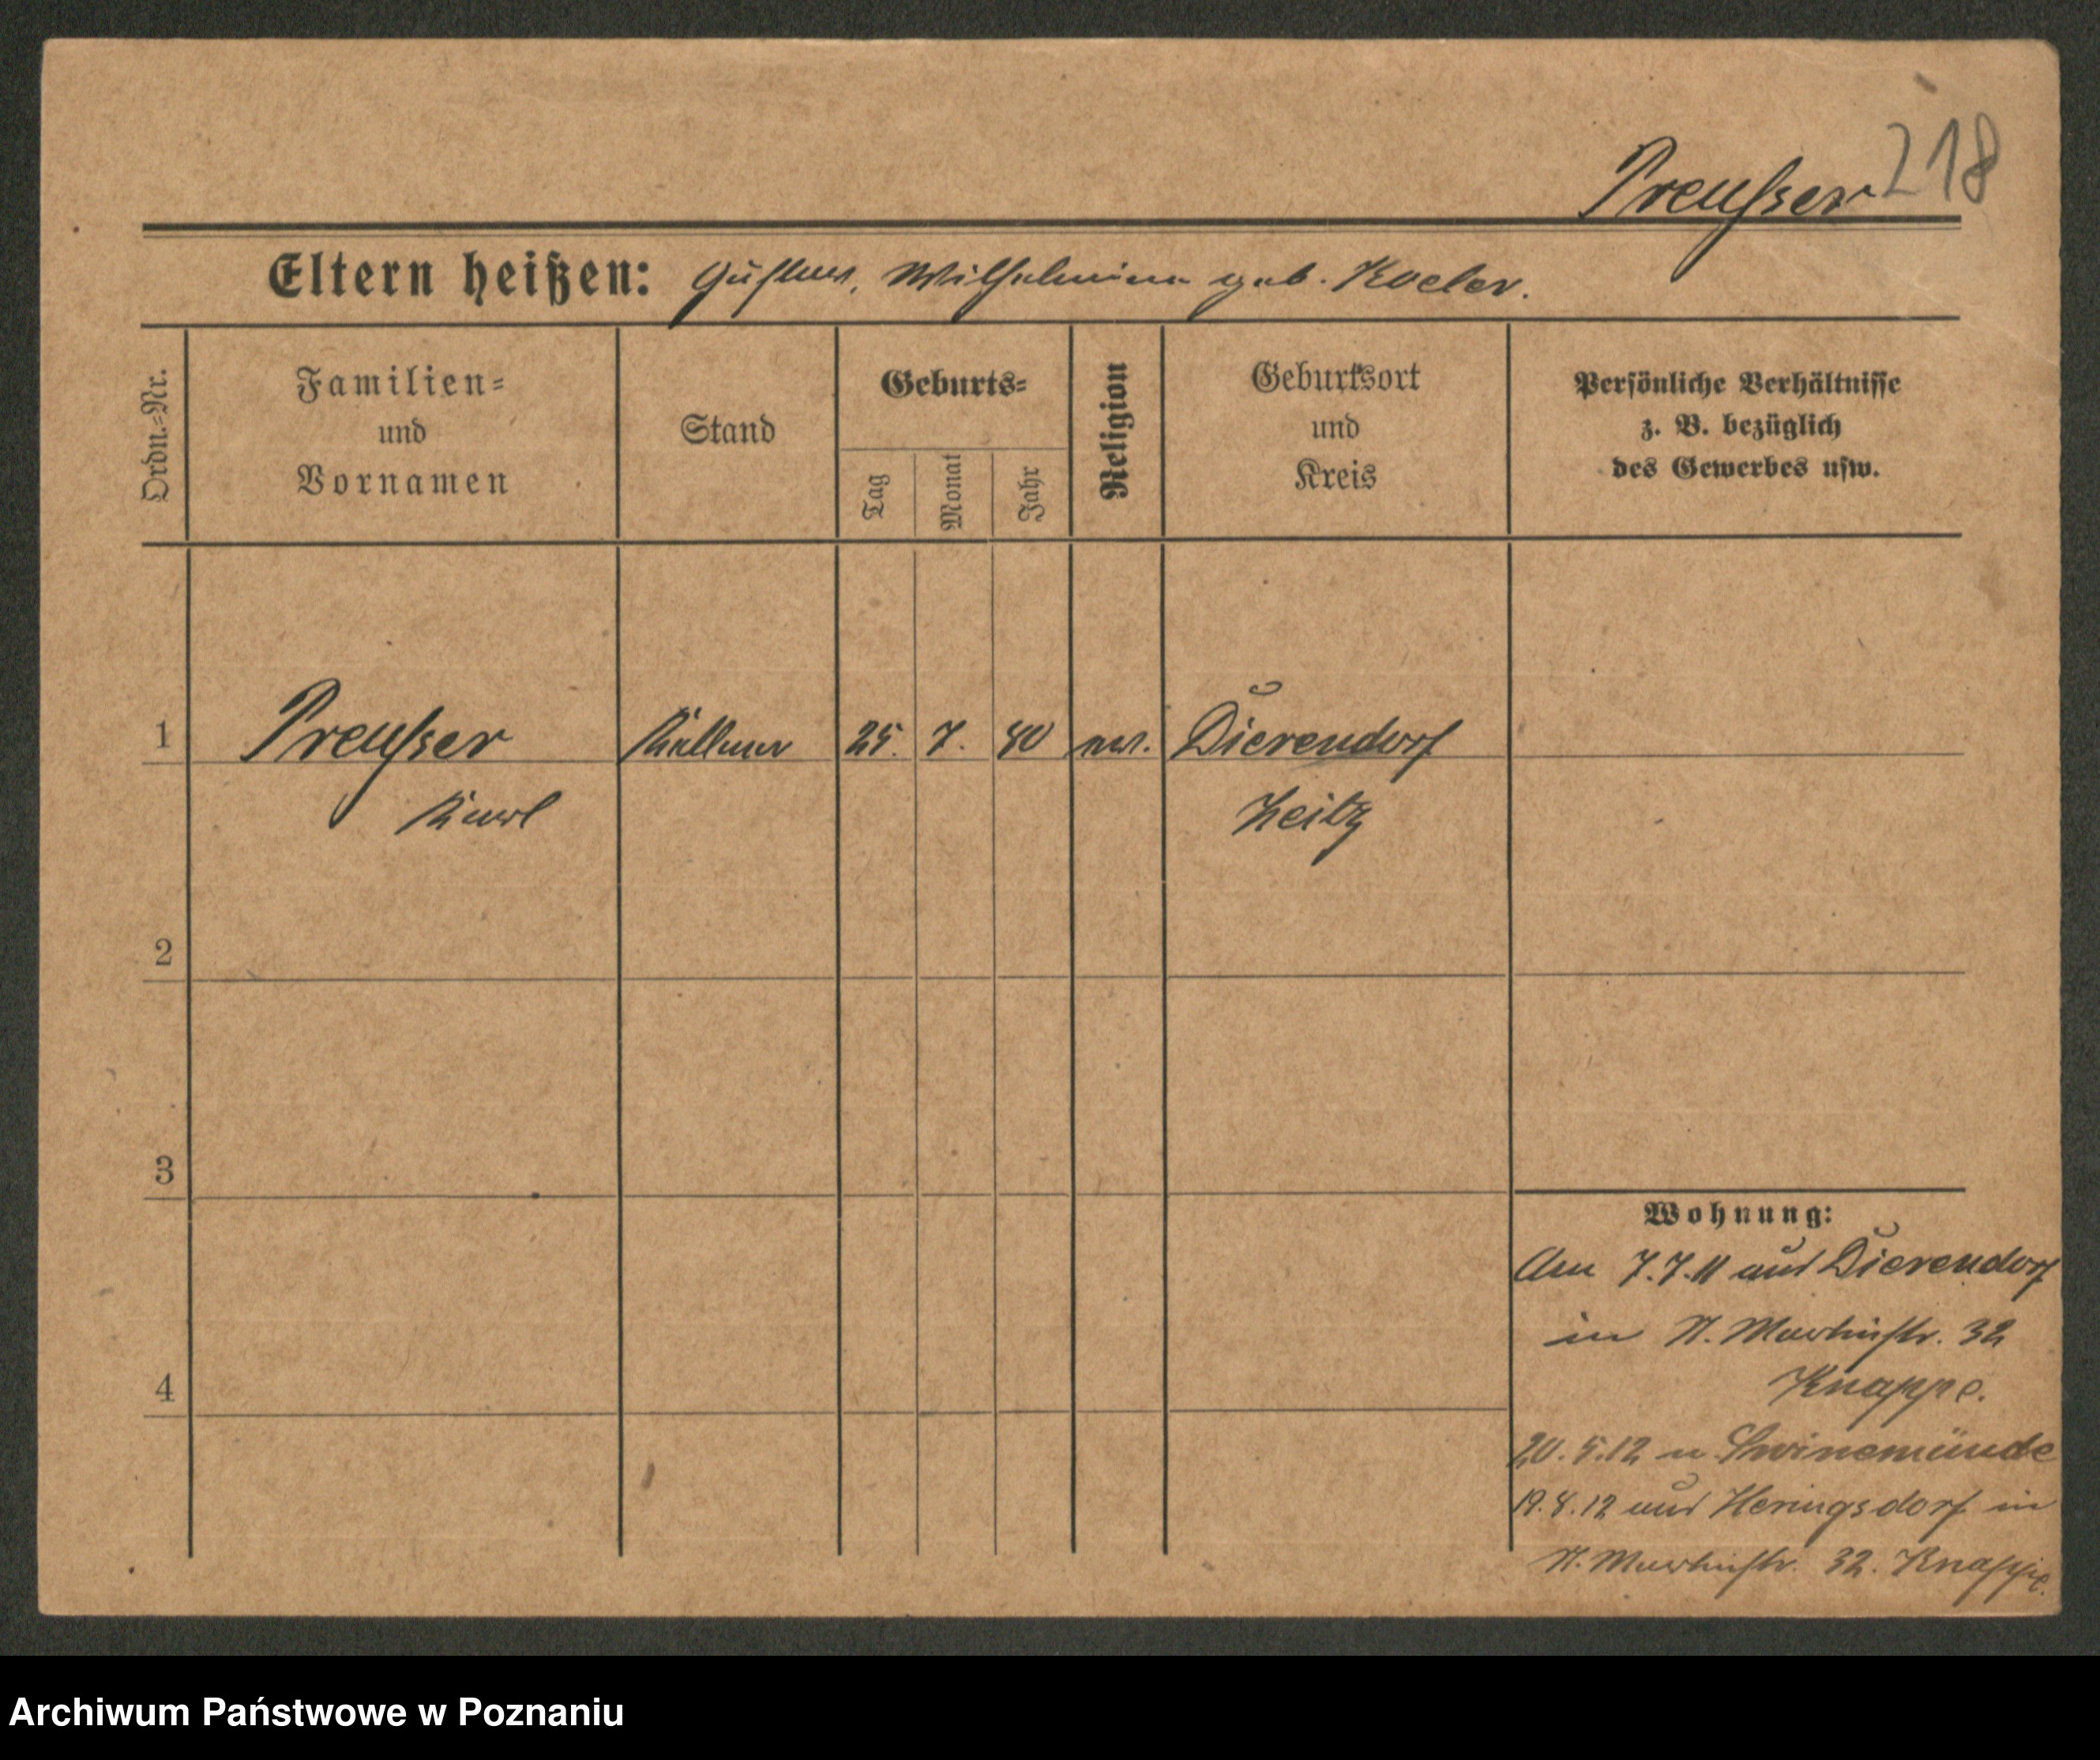 218
Preußer
Eltern heißen: Gustav, Wilhelmine geb. Koeler.
Ordn.=Nr.
Familien=
und
Vornamen
Stand
Geburts=
Tag
Monat
Jahr
Religion
Geburtsort
und
Kreis
Persönliche Verhältnisse
z. B. bezüglich
des Gewerbes usw.
1 Preußer Kellner 25. 7. 80 ev. Dierendorf
Karl Zeitz
2
3
4
Wohnung:
Am 7.7.11 aus Dierendorf
in St. Martinstr. 32
Knappe.
20.5.12 n. Swinemünde
19.8.12 aus Heringsdorf in
St. Martinstr. 32. Knappe.
Archiwum Państwowe w Poznaniu